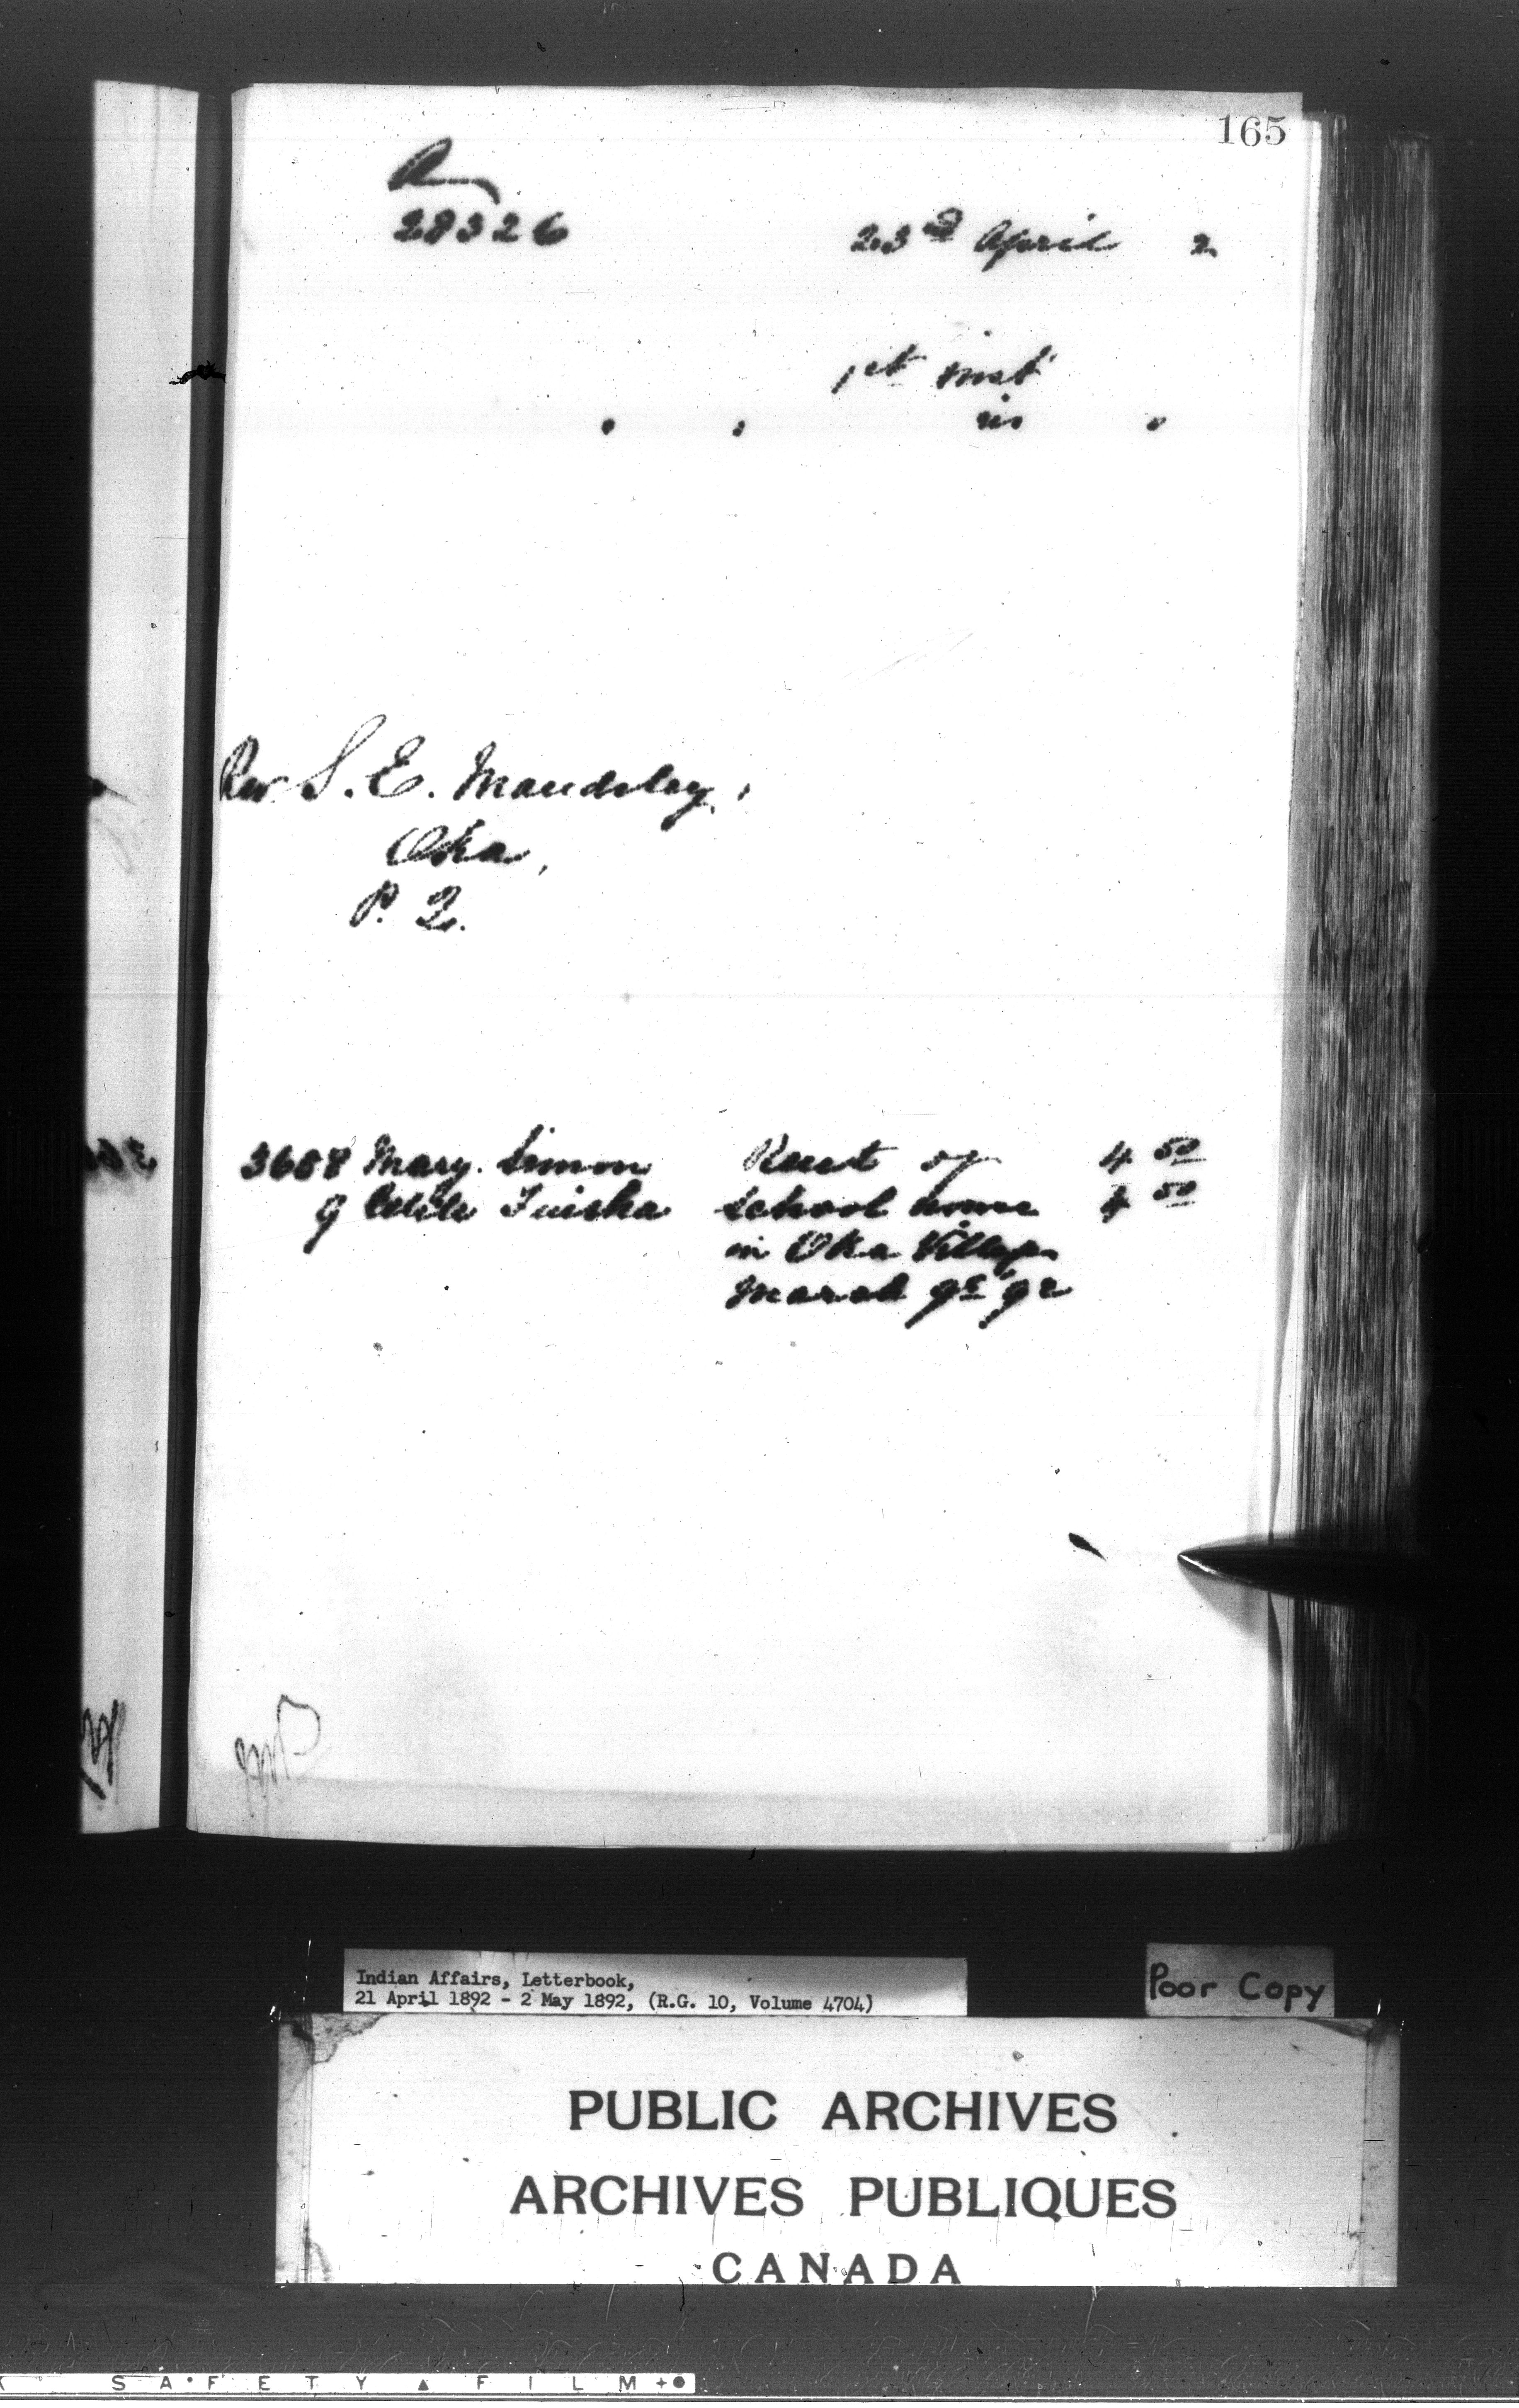 165
28326
23rd April 2
1st inst
is
Rev S. E. Maudsley,
Oka,
P. Q.
3608 Mary Simon Rent of 4 50
9 Tuisha School house 4 50
in Oka Village
March qr 92
Indian Affairs, Letterbook,
21 April 1892 - 2 May 1892, (R.G. 10, Volume 4704)
Poor Copy
PUBLIC ARCHIVES
ARCHIVES PUBLIQUES
CANADA
SAFETY ▲ FILM